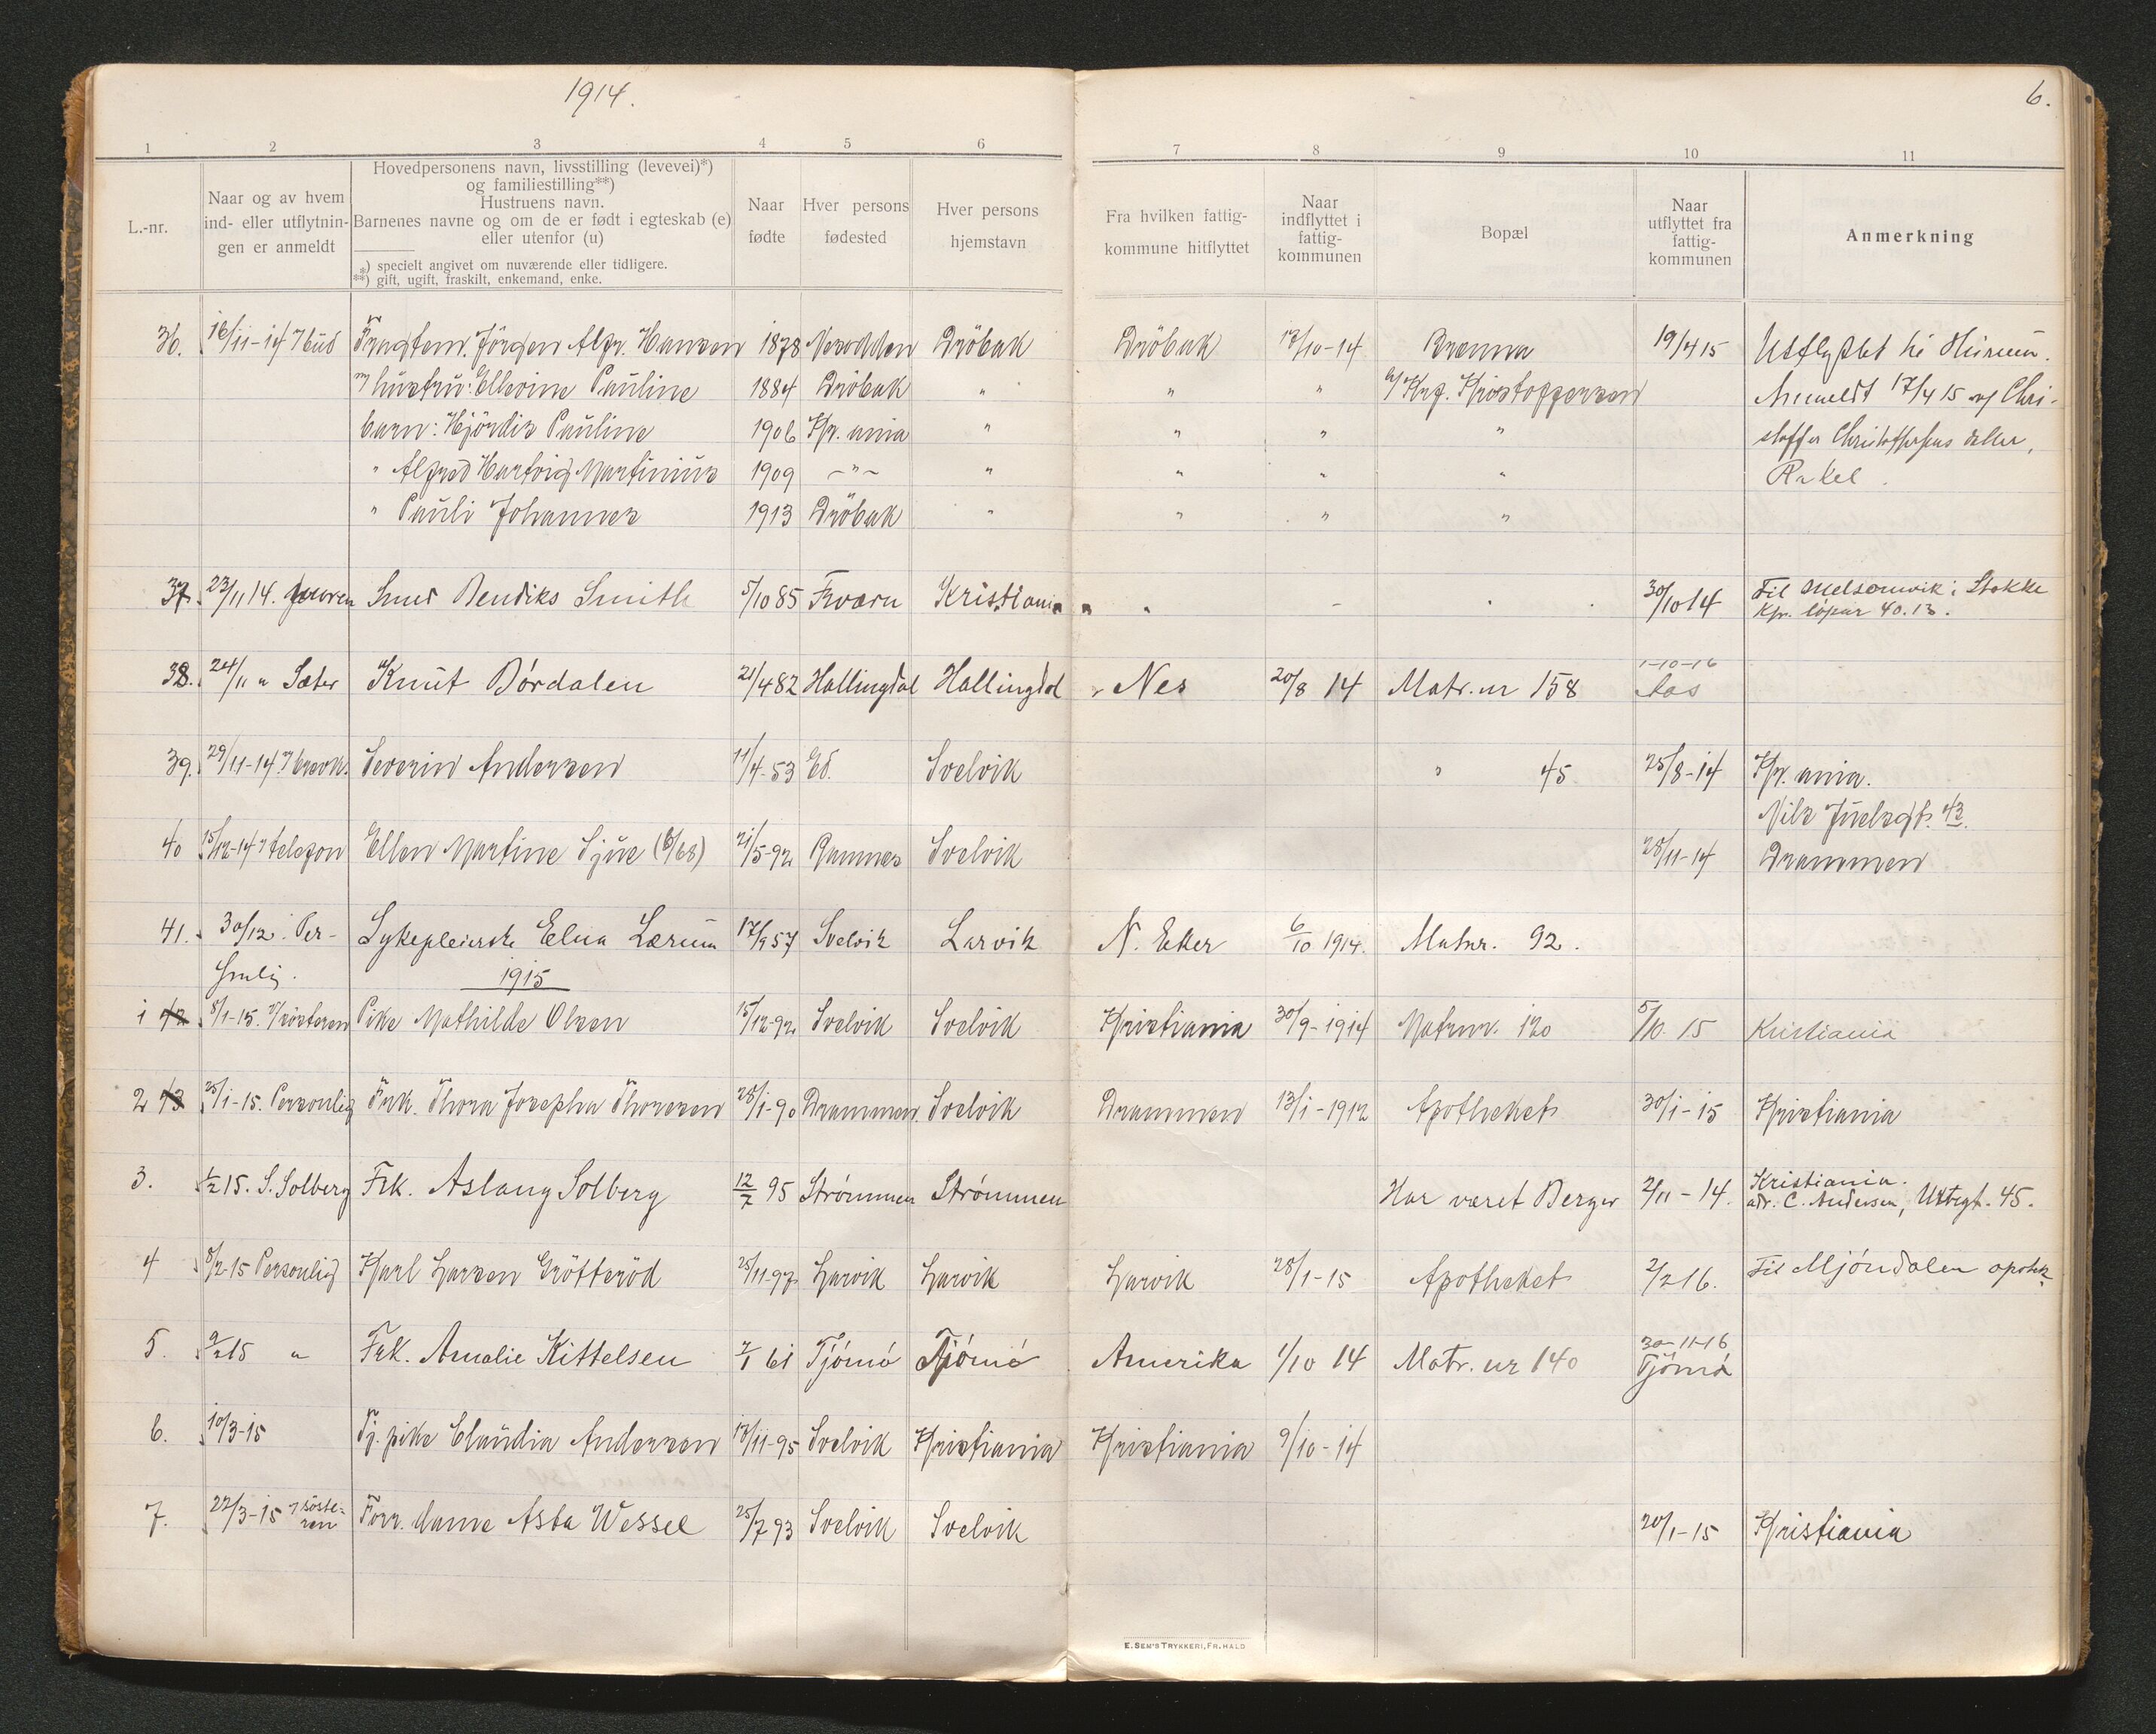 1914.
6.
1 2 3 4 5 6 7 8 9 10 11
L.-nr.
Naar og av hvem
ind- eller utflytnin-
gen er anmeldt
Hovedpersonens navn, livsstilling (levevei)*)
og familiestilling**)
Hustruens navn.
Barnenes navne og om de er født i egteskab (e)
eller utenfor (u)
*) specielt angivet om nuværende eller tidligere.
**) gift, ugift, fraskilt, enkemand, enke.
Naar
fødte
Hver persons
fødested
Hver persons
hjemstavn
Fra hvilken fattig-
kommune hitflyttet
Naar
indflyttet i
fattig-
kommunen
Bopæl
Naar
utflyttet fra
fattig-
kommunen
Anmerkning
36. 16/11-14 Jørgen Alfr. Hansen 1878 Nesodden Drøbak Drøbak 13/10-14 Brenna 19/4 15 Utflyttet til Hurum.
hustru: Ellevine Pauline 1884 Drøbak " " " Kristoffersen Anmeldt 17/4 15 af Chri-
barn: Hjördis Pauline 1906 Kr.ania " " " " stoffer Christoffersens
" Alfred Hartvig Martinius 1909 -"- " " " " Rakel.
" Pauli Johannes 1913 Drøbak " " " "
37. 23/11 14. Smed Bendiks Smith 5/10 85 Kristiania 30/10 14 Til Melsomvik i Stokke
40.13.
38. 24/11 " Sæter Knut Børdalen 21/4 82 Hallingdal Hallingdal Nes 20/8 14 Matr.nr 158 1-10-16
Aas
39. 29/11-14 Severin Andersen 11/4-53 Ed. Svelvik " 45 25/8-14 Kr.ania.
Nils Juelsgt. 43.
40 15/12-14 telefon Ellen Martine Sjue (6/68) 21/5-92 Svelvik 28/11-14 Drammen
41. 30/12. Per-
sonlig. Sykepleierske Elna Lærum 17/9 57 Svelvik Larvik N. Eker 6/10 1914. Matnr. 92.
1915
1 42 8/1-15. søsteren Pike Mathilde Olsen 15/12-92 Svelvik Svelvik Kristiania 30/9-1914 Matrnr. 120 5/10. 15 Kristiania
2 43 25/1-15. Personlig Frk. Thora Josepha Thoresen 28/1-90 Drammen Svelvik Drammen 13/1-1912 Apotheket 30/1-15 Kristiania
3. 1/2 15. S. Solberg Frk. Aslaug Solberg 12/7 95 Strømmen Strømmen Har været Berger 2/11-14. Kristiania.
adr. C. Andersen, 45.
4 8/2-15 Personlig Karl Larsen Grötteröd 25/11-97 Larvik Larvik Larvik 28/1-15 Apotheket 2/2 16. Til Mjøndalen apotek
5. 9/2 15 " Frk. Amalie Kittelsen 2/1 61 Tjømø Tjømø Amerika 1/10 14 Matr. nr 140 30-11-16
Tjømø
6. 10/3-15 Tj.pike Claudia Andersen 13/11-95 Svelvik Kristiania Kristiania 9/10-14
7. 22/3-15 søste-
ren Forr.dame Asta Wessel 25/7 93 Svelvik Svelvik 20/1-15 Kristiania
E. SEM'S TRYKKERI, FR.HALD